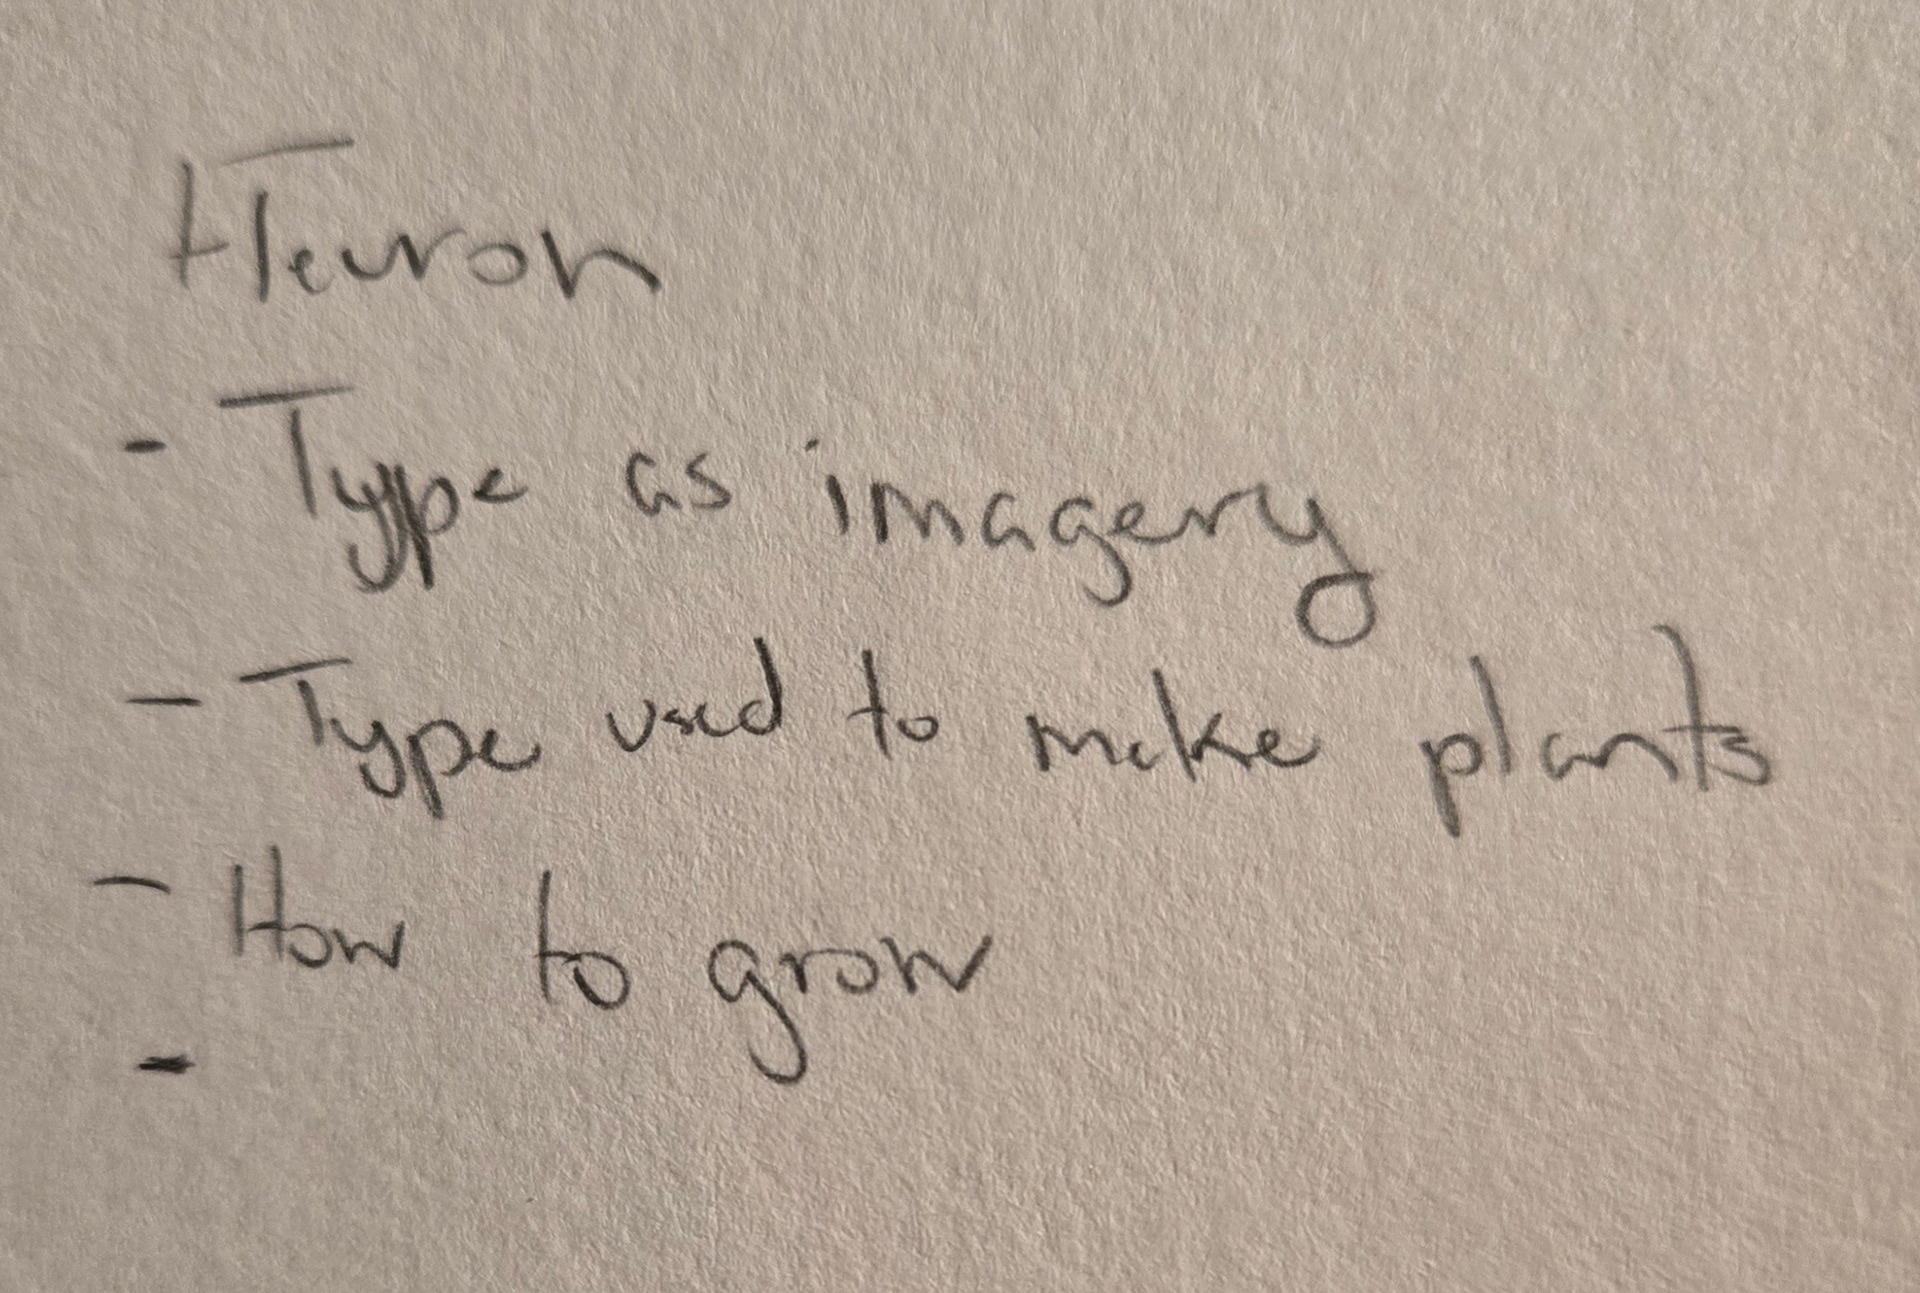 Fleuron
- Type as imagery
- Type used to make plants
- How to grow
-